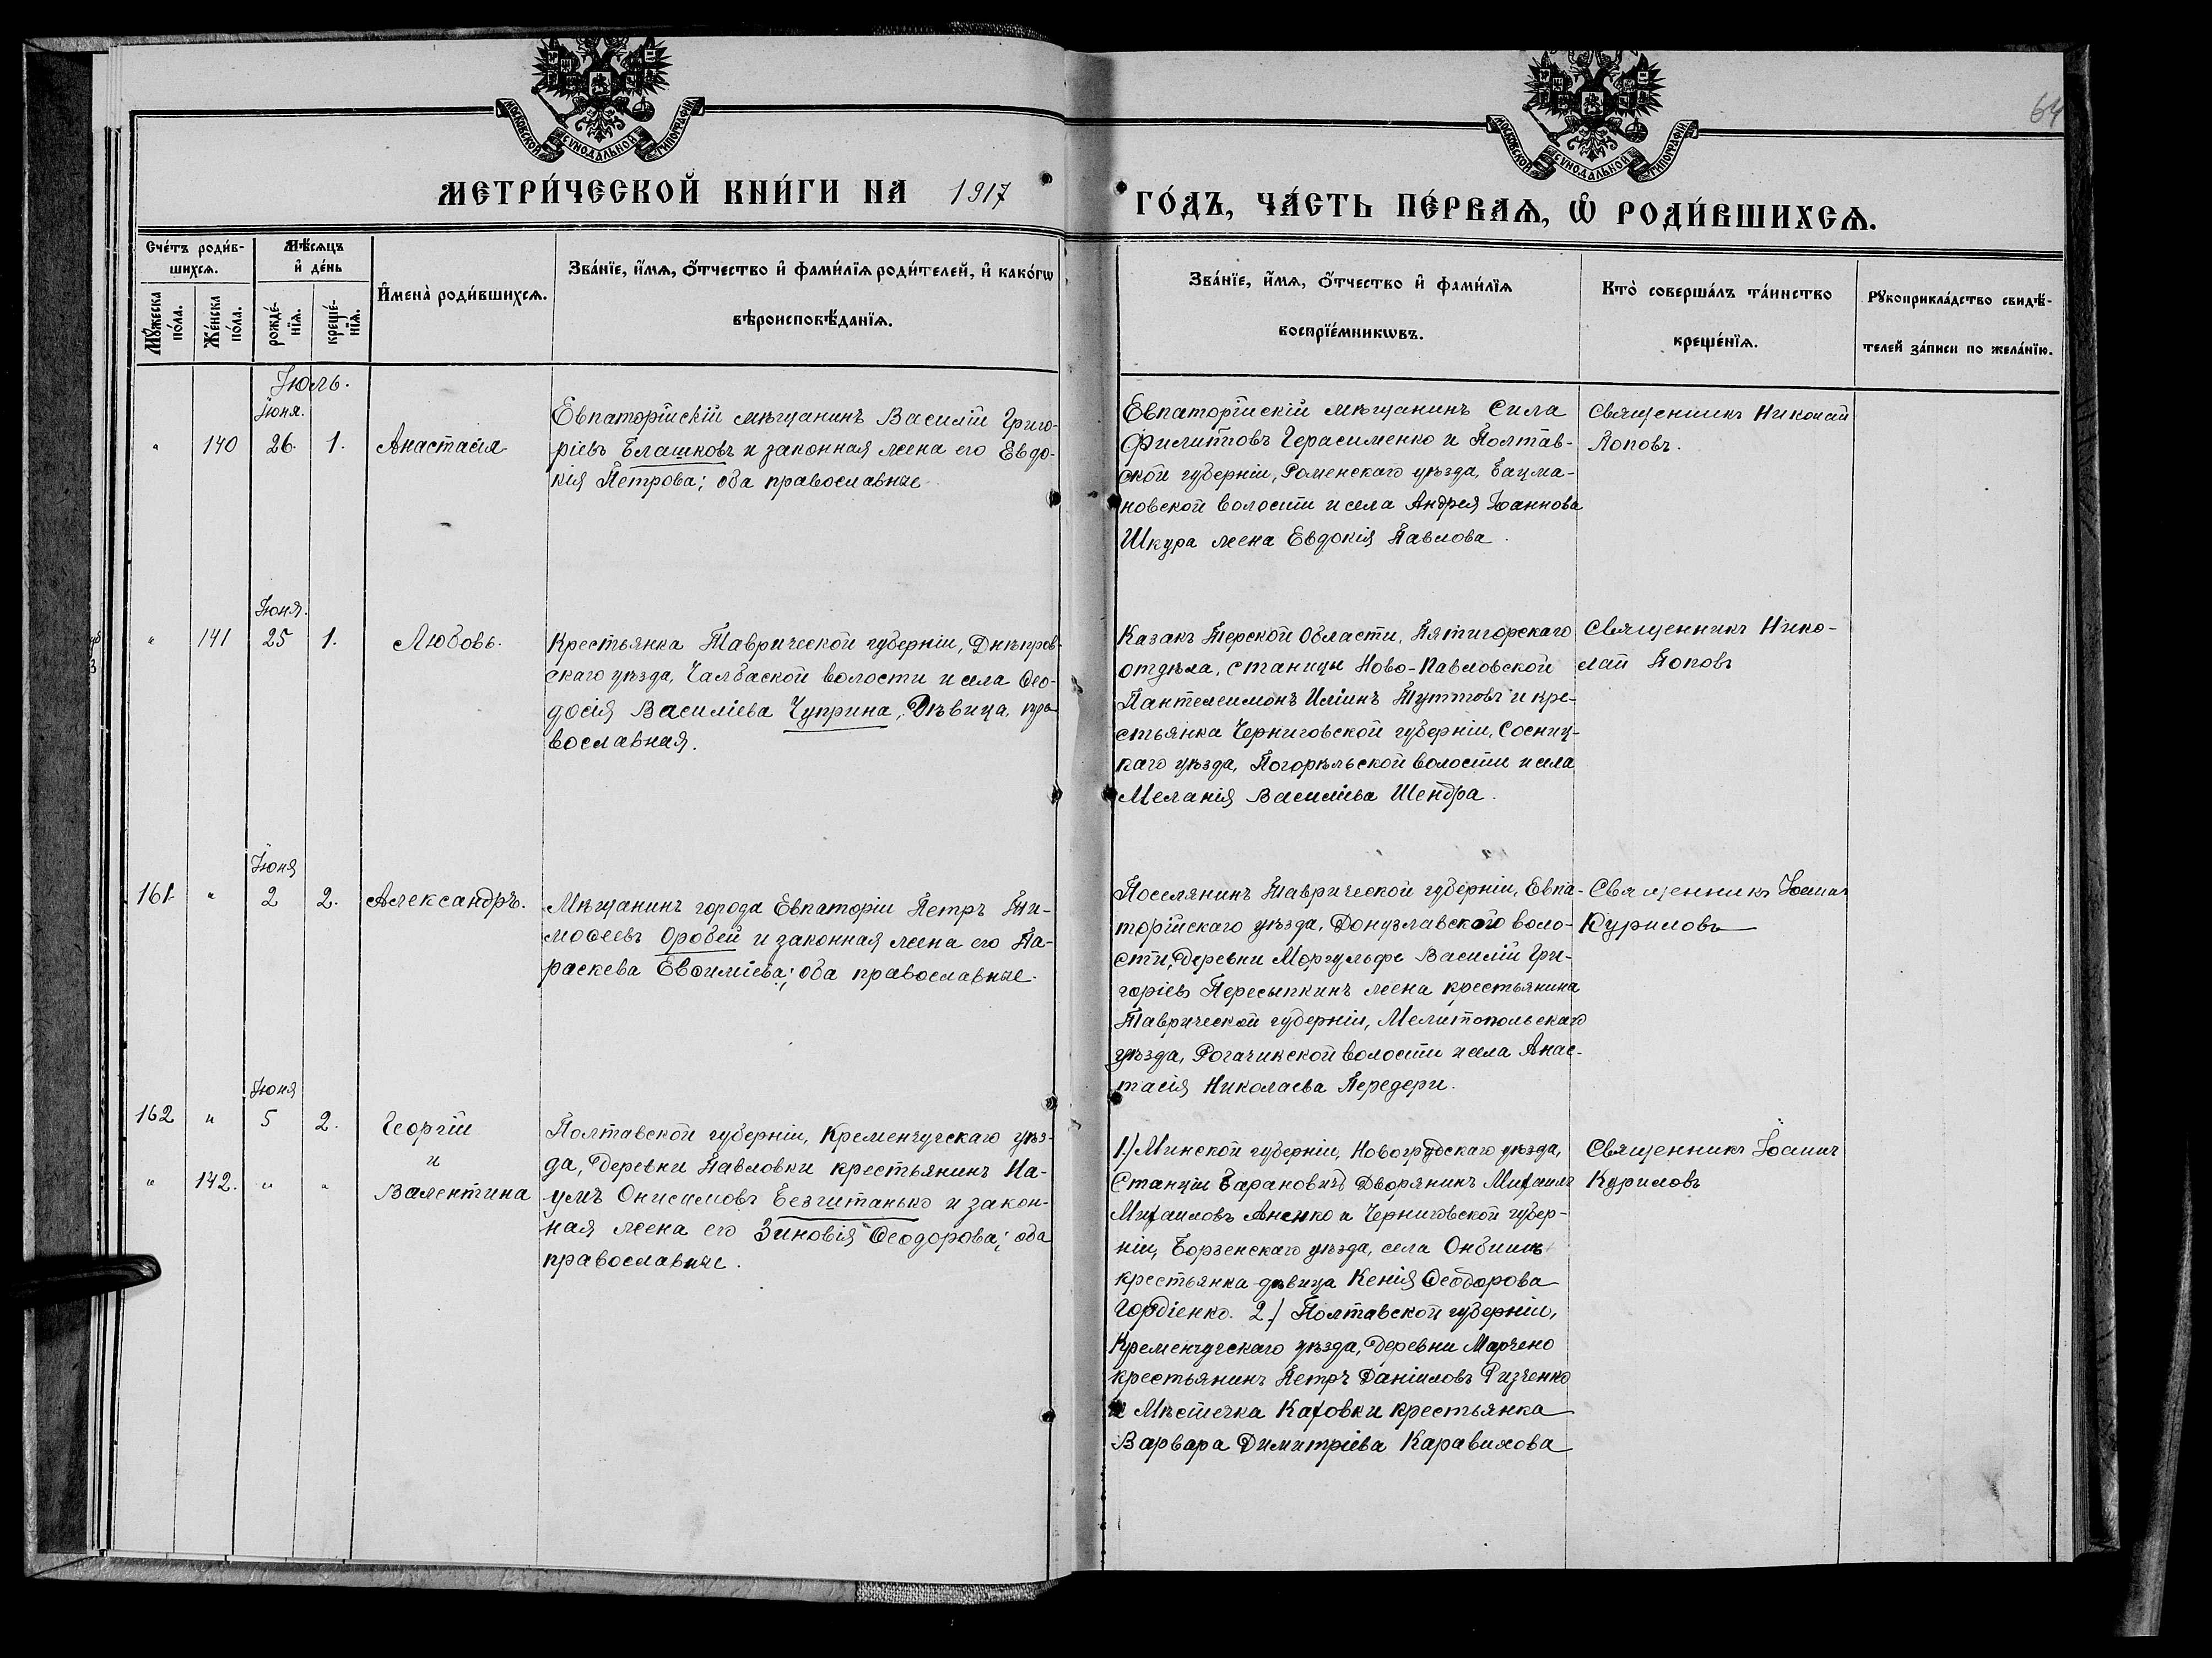 64
МОСКОВСКОЙ СѴНОДАЛЬНОЙ ТИПОГРАФІИ
МОСКОВСКОЙ СѴНОДАЛЬНОЙ ТИПОГРАФІИ
МЕТРИ́ЧЕСКОЙ КНИ́ГИ НА 1917
ГО́ДЪ, ЧА́СТЬ ПЕ́РВАѦ, Ѡ҆ РОДИ́ВШИХСѦ.
Сче́тъ роди́в-
шихсѧ.
Мꙋ́жеска по́ла.
Же́нска по́ла.
Мѣ́сѧцъ
и҆ де́нь
рожде́-
нїѧ.
креще́-
нїѧ.
И҆мена̀ роди́вшихсѧ.
Зва́нїе, и҆́мѧ, ѻ҆́тчество и҆ фами́лїѧ роди́телей, и҆ како́гѡ
вѣроисповѣ́данїѧ.
Зва́нїе, и҆́мѧ, ѻ҆́тчество и҆ фами́лїѧ
воспрїе́мникѡвъ.
Кто̀ соверша́лъ та́инство
креще́нїѧ.
Рꙋкоприкла́дство свидѣ́-
телей за́писи по жела́нїю.
Іюль.
Іюня.
" 140 26. 1. Анастасія
Евпаторійскій мѣщанинъ Василій Григо-
ріевъ Блашковъ и законная жена его Евдо-
кія Петрова; оба православные
Евпаторійскій мѣщанинъ Сила
Филипповъ Герасименко и Полтав-
ской губерніи, Роменскаго уѣзда, Бацма-
новской волости и села Андрея Іоаннова
Шкура жена Евдокія Павлова.
Священникъ Николай
Поповъ.
Іюня.
" 141 25 1. Любовь.
Крестьянка Таврической губерніи, Днѣпров-
скаго уѣзда, Чалбаской волости и села Ѳео-
досія Василіева Чуприна, дѣвица, пра-
вославная.
Казакъ Терской Области, Пятигорскаго
отдѣла, станицы Ново-Павловской
Пантелеимонъ Иліинъ и кре-
стьянка Черниговской губерніи, Сосниц-
каго уѣзда, Погорѣльской волости и села
Меланія Василіева Шендра.
Священникъ Нико-
лай Поповъ
Іюня
161 " 2 2. Александръ.
Мѣщанинъ города Евпаторіи Петръ Ти-
моѳеевъ Оробей и законная жена его Па-
раскева Евѳиміева; оба православные.
Поселянинъ Таврической губерніи, Евпа-
торійскаго уѣзда, Донузлавской воло-
сти, деревни Василій Гри-
горіевъ Пересыпкинъ жена крестьянина
Таврической губерніи, Мелитопольскаго
уѣзда, Рогачикской волости и села Анас-
тасія Николаева Передери.
Священникъ Іоаннъ
Куриловъ
Іюня
162 " 5 2. Георгій
и
" 142. " " Валентина
Полтавской губерніи, Кременчугскаго уѣз-
да, деревни Павловки крестьянинъ На-
умъ Онисимовъ Безштанько и закон-
ная жена его Зиновія Ѳеодорова; оба
православные.
1.) Минской губерніи, Новогрудскаго уѣзда,
Станціи Барановичъ Дворянинъ Михаилъ
Михаиловъ Аненко и Черниговской губер-
ніи, Борзенскаго уѣзда, села
крестьянка дѣвица Ксенія Ѳеодорова
Гордіенко. 2.) Полтавской губерніи,
Кременчугскаго уѣзда, деревни Марчено
крестьянинъ Петръ Даніиловъ Ризченко
и Мѣстечка Каховки крестьянка
Варвара Димитріева Каравилова
Священникъ Іоаннъ
Куриловъ